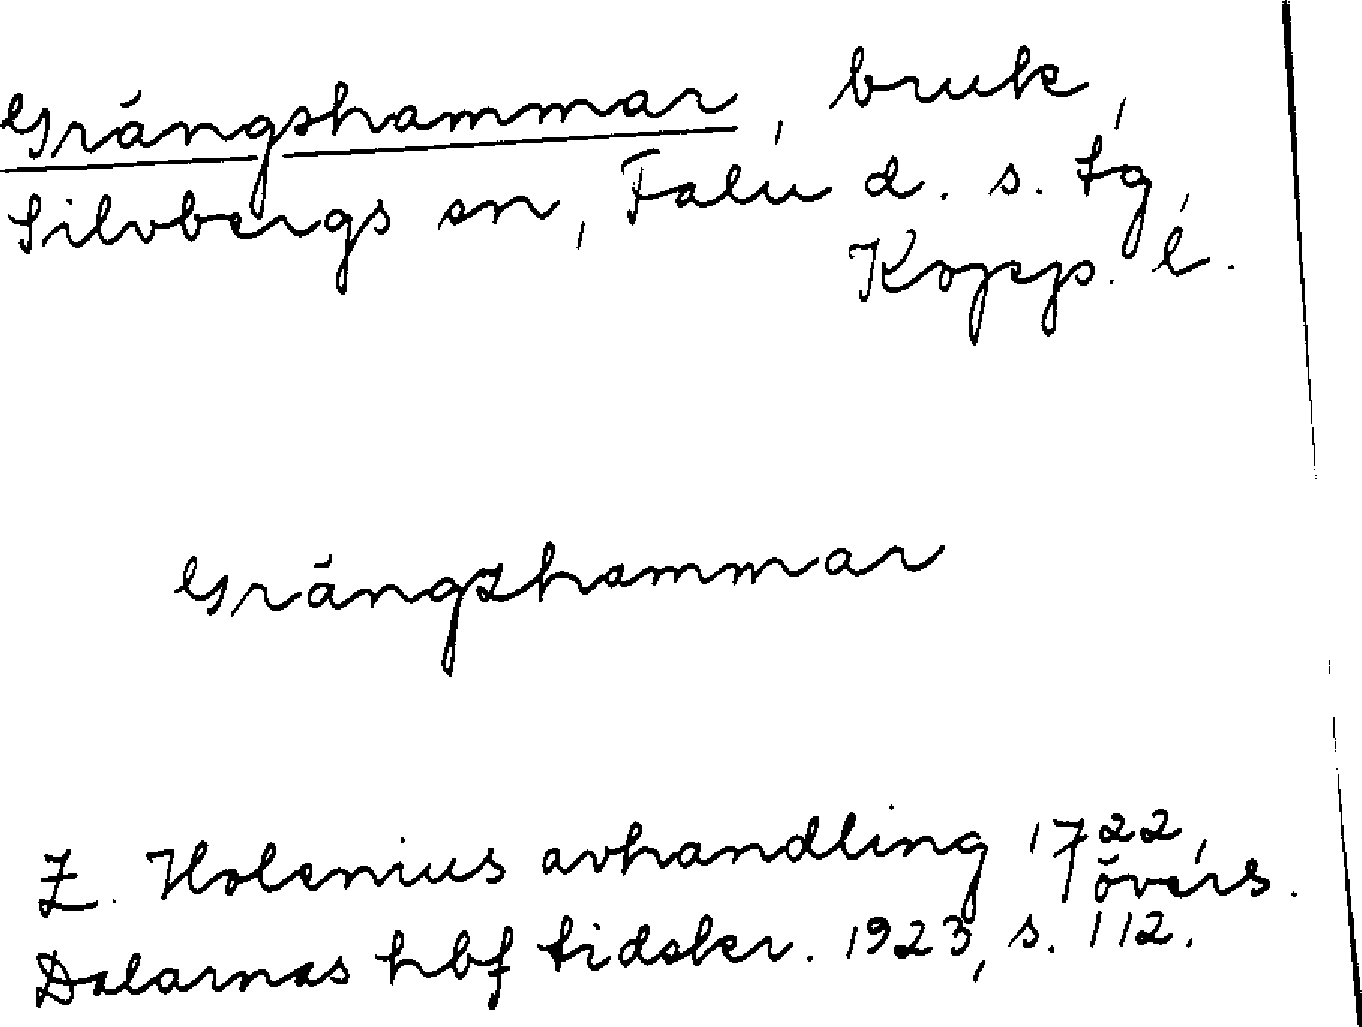 Grängshammar, bruk,
Silvbergs sn, Falu d. s. tg,
Kopp. l.
Grängzhammar
Z. Holenius avhandling 1722, övers.
Dalarnas hbf tidskr. 1923, s. 112.